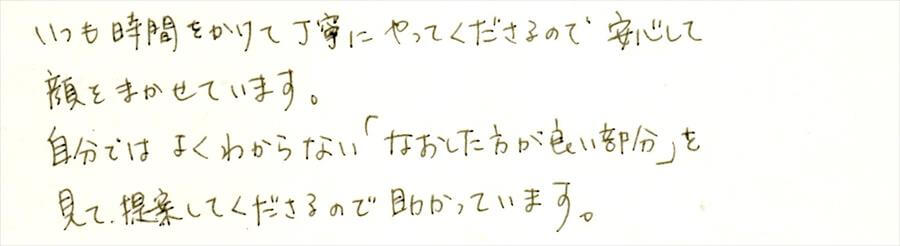 いつも時間をかけて丁寧にやってくださるので安心して
顔をまかせています。
自分ではよくわからない「なおした方が良い部分」を
見て、提案してくださるので助かっています。